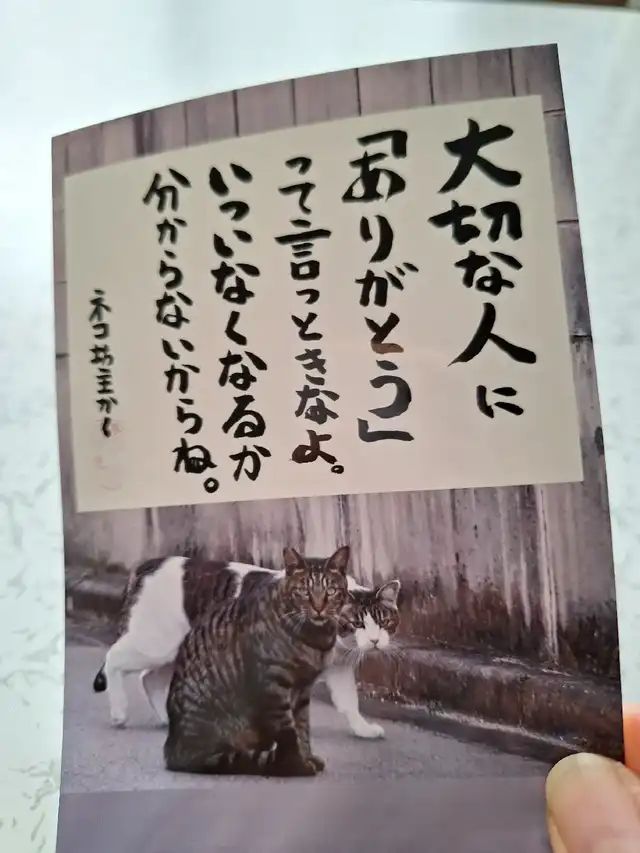 大切な人に
「ありがとう」
って言っときなよ。
いついなくなるか
分からないからね。
ネコ坊主かく